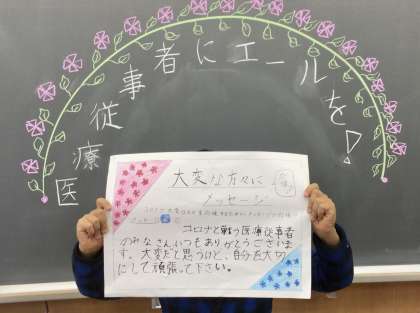 医療従事者にエールを!
大変な方々に
メッセージ
コロナと戦う医療従事者
のみなさんいつもありがとうございま
す。大変だと思うけど、自分を大切
にして頑張って下さい。